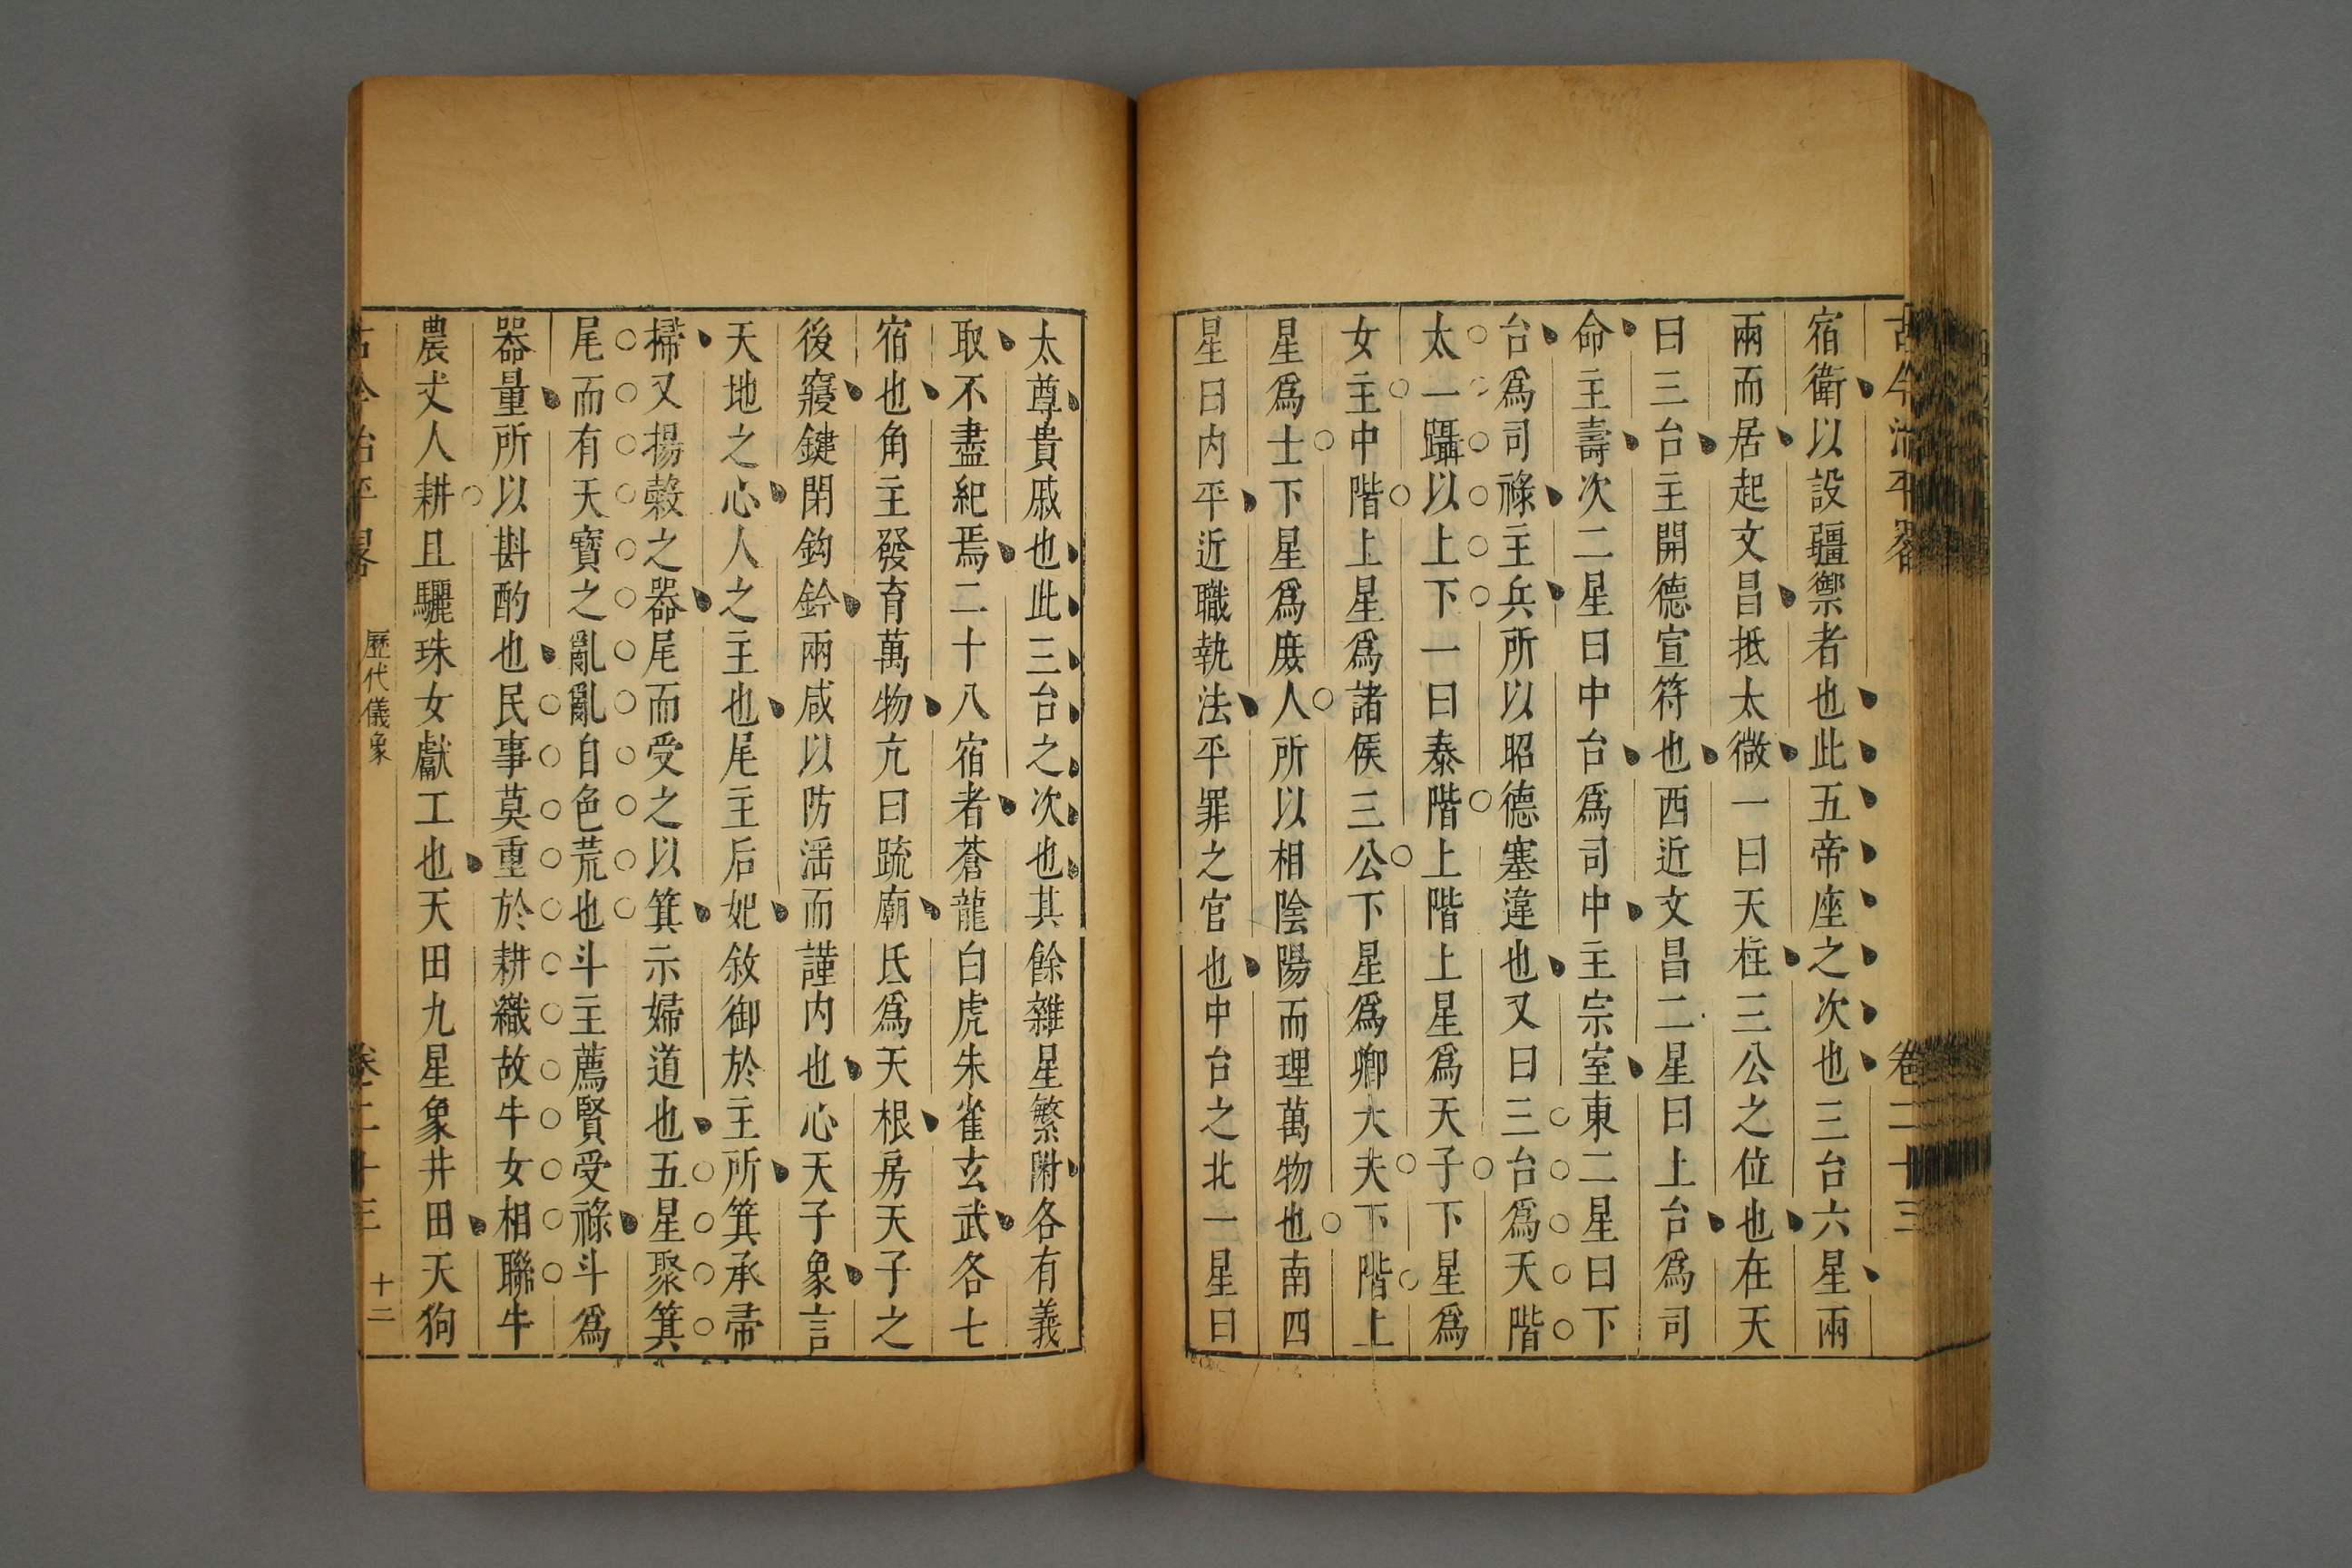 古今治平畧 卷二十三
宿衛以設疆禦者也此五帝座之次也三台六星兩
兩而居起文昌抵太微一曰天柱三公之位也在天
曰三台主開德宣符也西近文昌二星曰上台爲司
命主壽次二星曰中台爲司中主宗室東二星曰下
台爲司祿主兵所以昭德塞違也又曰三台爲天階
太一躡以上下一曰泰階上階上星爲天子下星爲
女主中階上星爲諸侯三公下星爲卿大夫下階上
星爲士下星爲庶人所以相陰陽而理萬物也南四
星曰內平近職執法平罪之官也中台之北一星曰
太尊貴戚也此三台之次也其餘雜星繁附各有義
取不盡紀焉二十八宿者蒼龍白虎朱雀玄武各七
宿也角主發育萬物亢曰疏廟氐爲天根房天子之
後寢鍵閉鈎鈐兩咸以防淫而謹內也心天子象言
天地之心人之主也尾主后妃敘御於主所箕承帚
掃又揚穀之器尾而受之以箕示婦道也五星聚箕
尾而有天寶之亂亂自色荒也斗主薦賢受祿斗爲
器量所以斟酌也民事莫重於耕織故牛女相聯牛
農丈人耕且驪珠女獻工也天田九星象井田天狗
古今治平畧 歷代儀象 卷二十三 十二